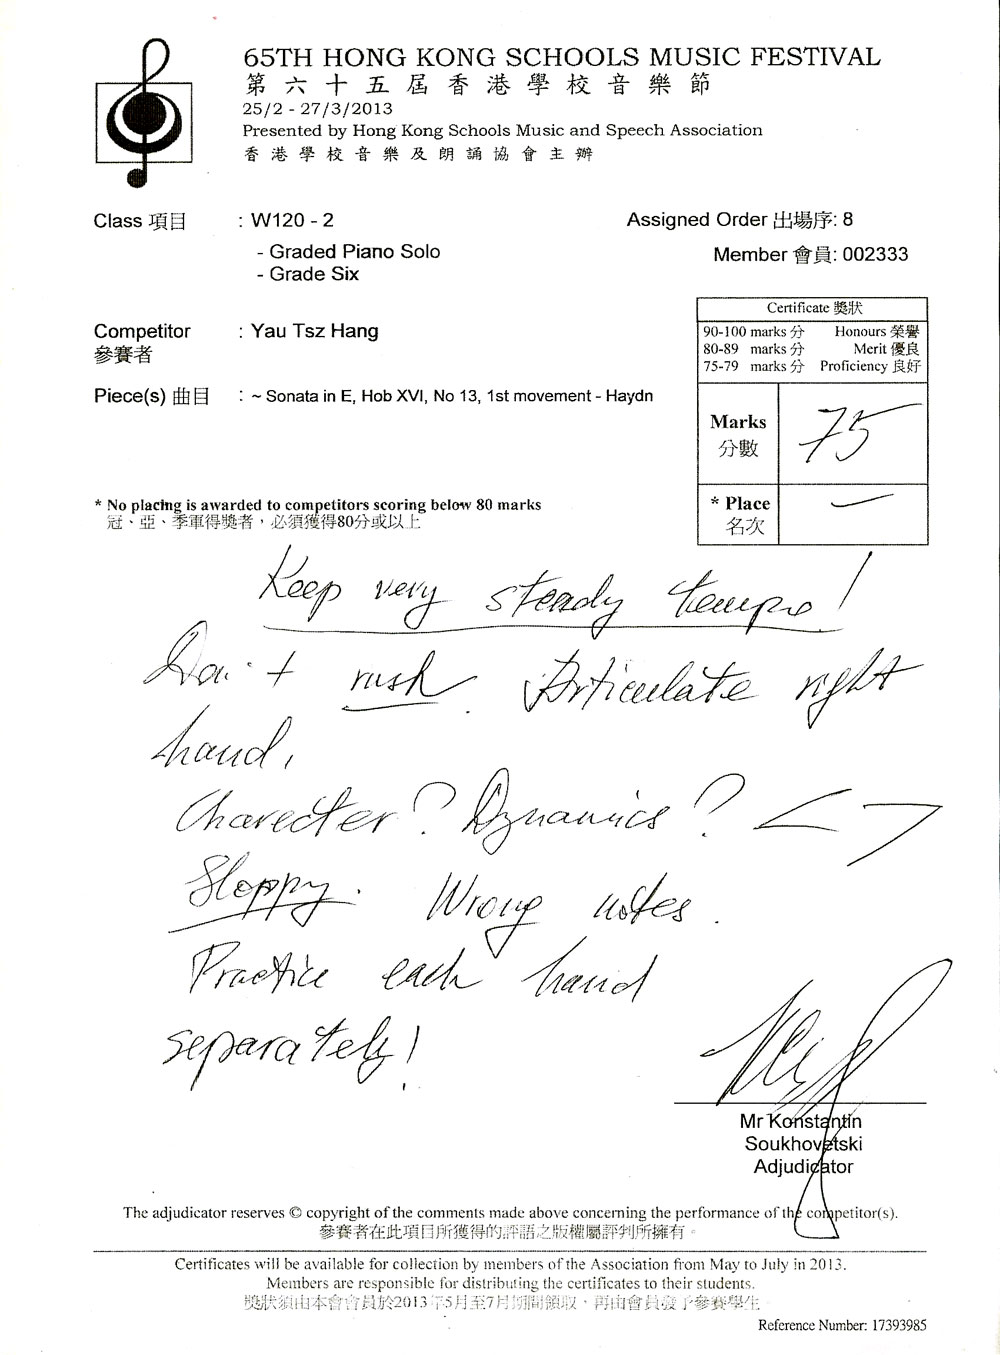 65TH HONG KONG SCHOOLS MUSIC FESTIVAL
第六十五屆香港學校音樂節
25/2 - 27/3/2013
Presented by Hong Kong Schools Music and Speech Association
香港學校音樂及朗誦協會主辦
Class 項目 : W120 - 2
Assigned Order 出場序: 8
- Graded Piano Solo
Member 會員: 002333
- Grade Six
Certificate 獎狀
90-100 marks 分 Honours 榮譽
80-89 marks 分 Merit 優良
75-79 marks 分 Proficiency 良好
Competitor : Yau Tsz Hang
參賽者
Piece(s) 曲目 : ~ Sonata in E, Hob XVI, No 13, 1st movement - Haydn
Marks 75
分數
* Place —
名次
* No placing is awarded to competitors scoring below 80 marks
冠、亞、季軍得獎者，必須獲得80分或以上
Keep very steady tempo!
Don't rush. Articulate right
hand,
Charecter? Dynamics? < >
Sloppy. Wrong notes.
Practice each hand
separately!
Mr Konstantin
Soukhovetski
Adjudicator
The adjudicator reserves © copyright of the comments made above concerning the performance of the competitor(s).
參賽者在此項目所獲得的評語之版權屬評判所擁有。
Certificates will be available for collection by members of the Association from May to July in 2013.
Members are responsible for distributing the certificates to their students.
獎狀須由本會會員於2013年5月至7月期間領取，再由會員發予參賽學生
Reference Number: 17393985